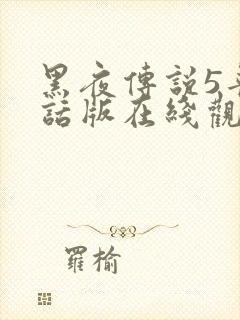 黑夜傳説5
話版在綫觀
羅榆